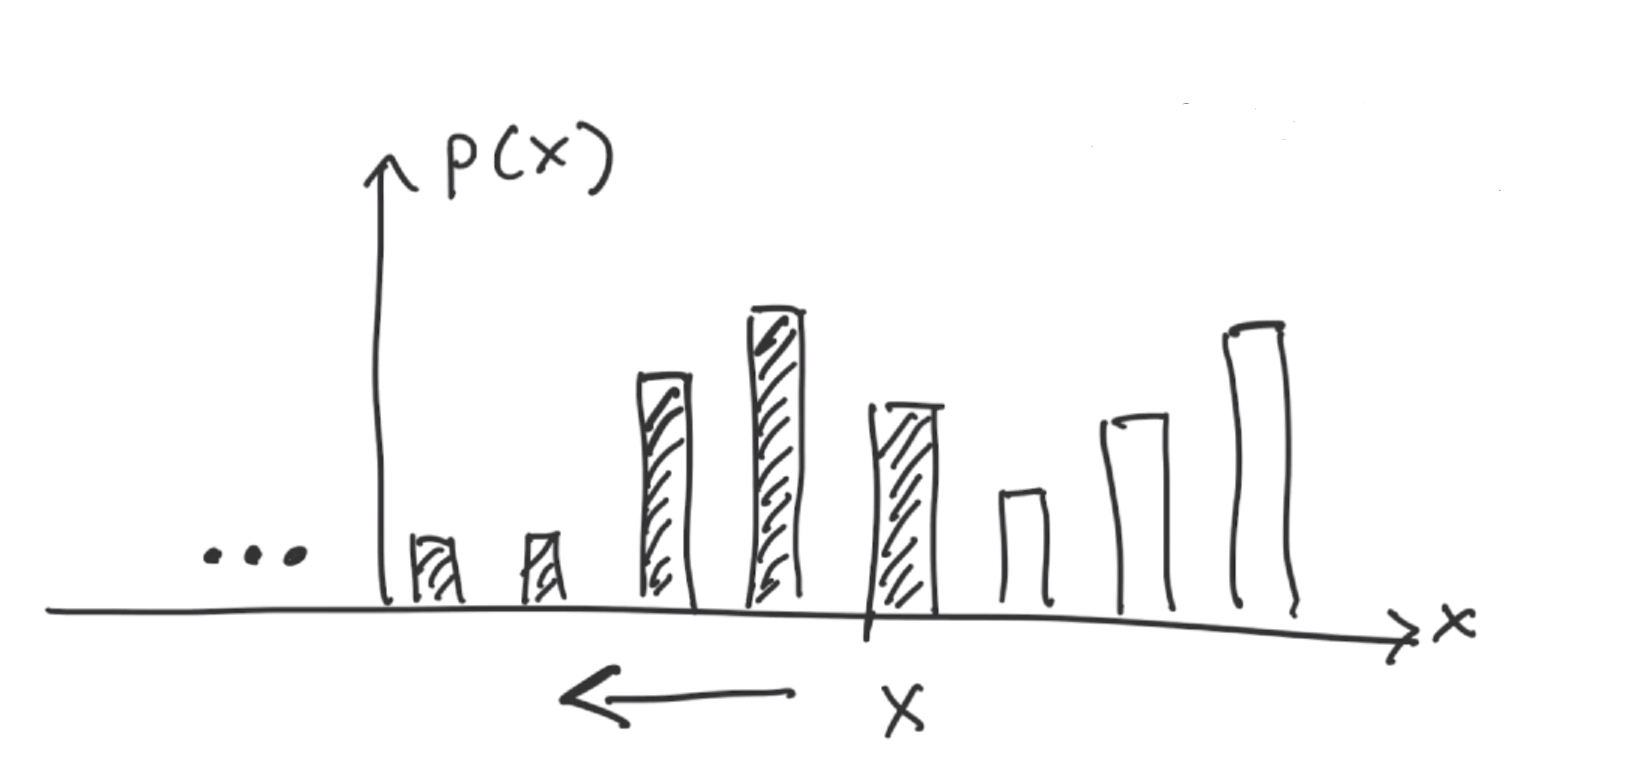 p(x)
...
x
x